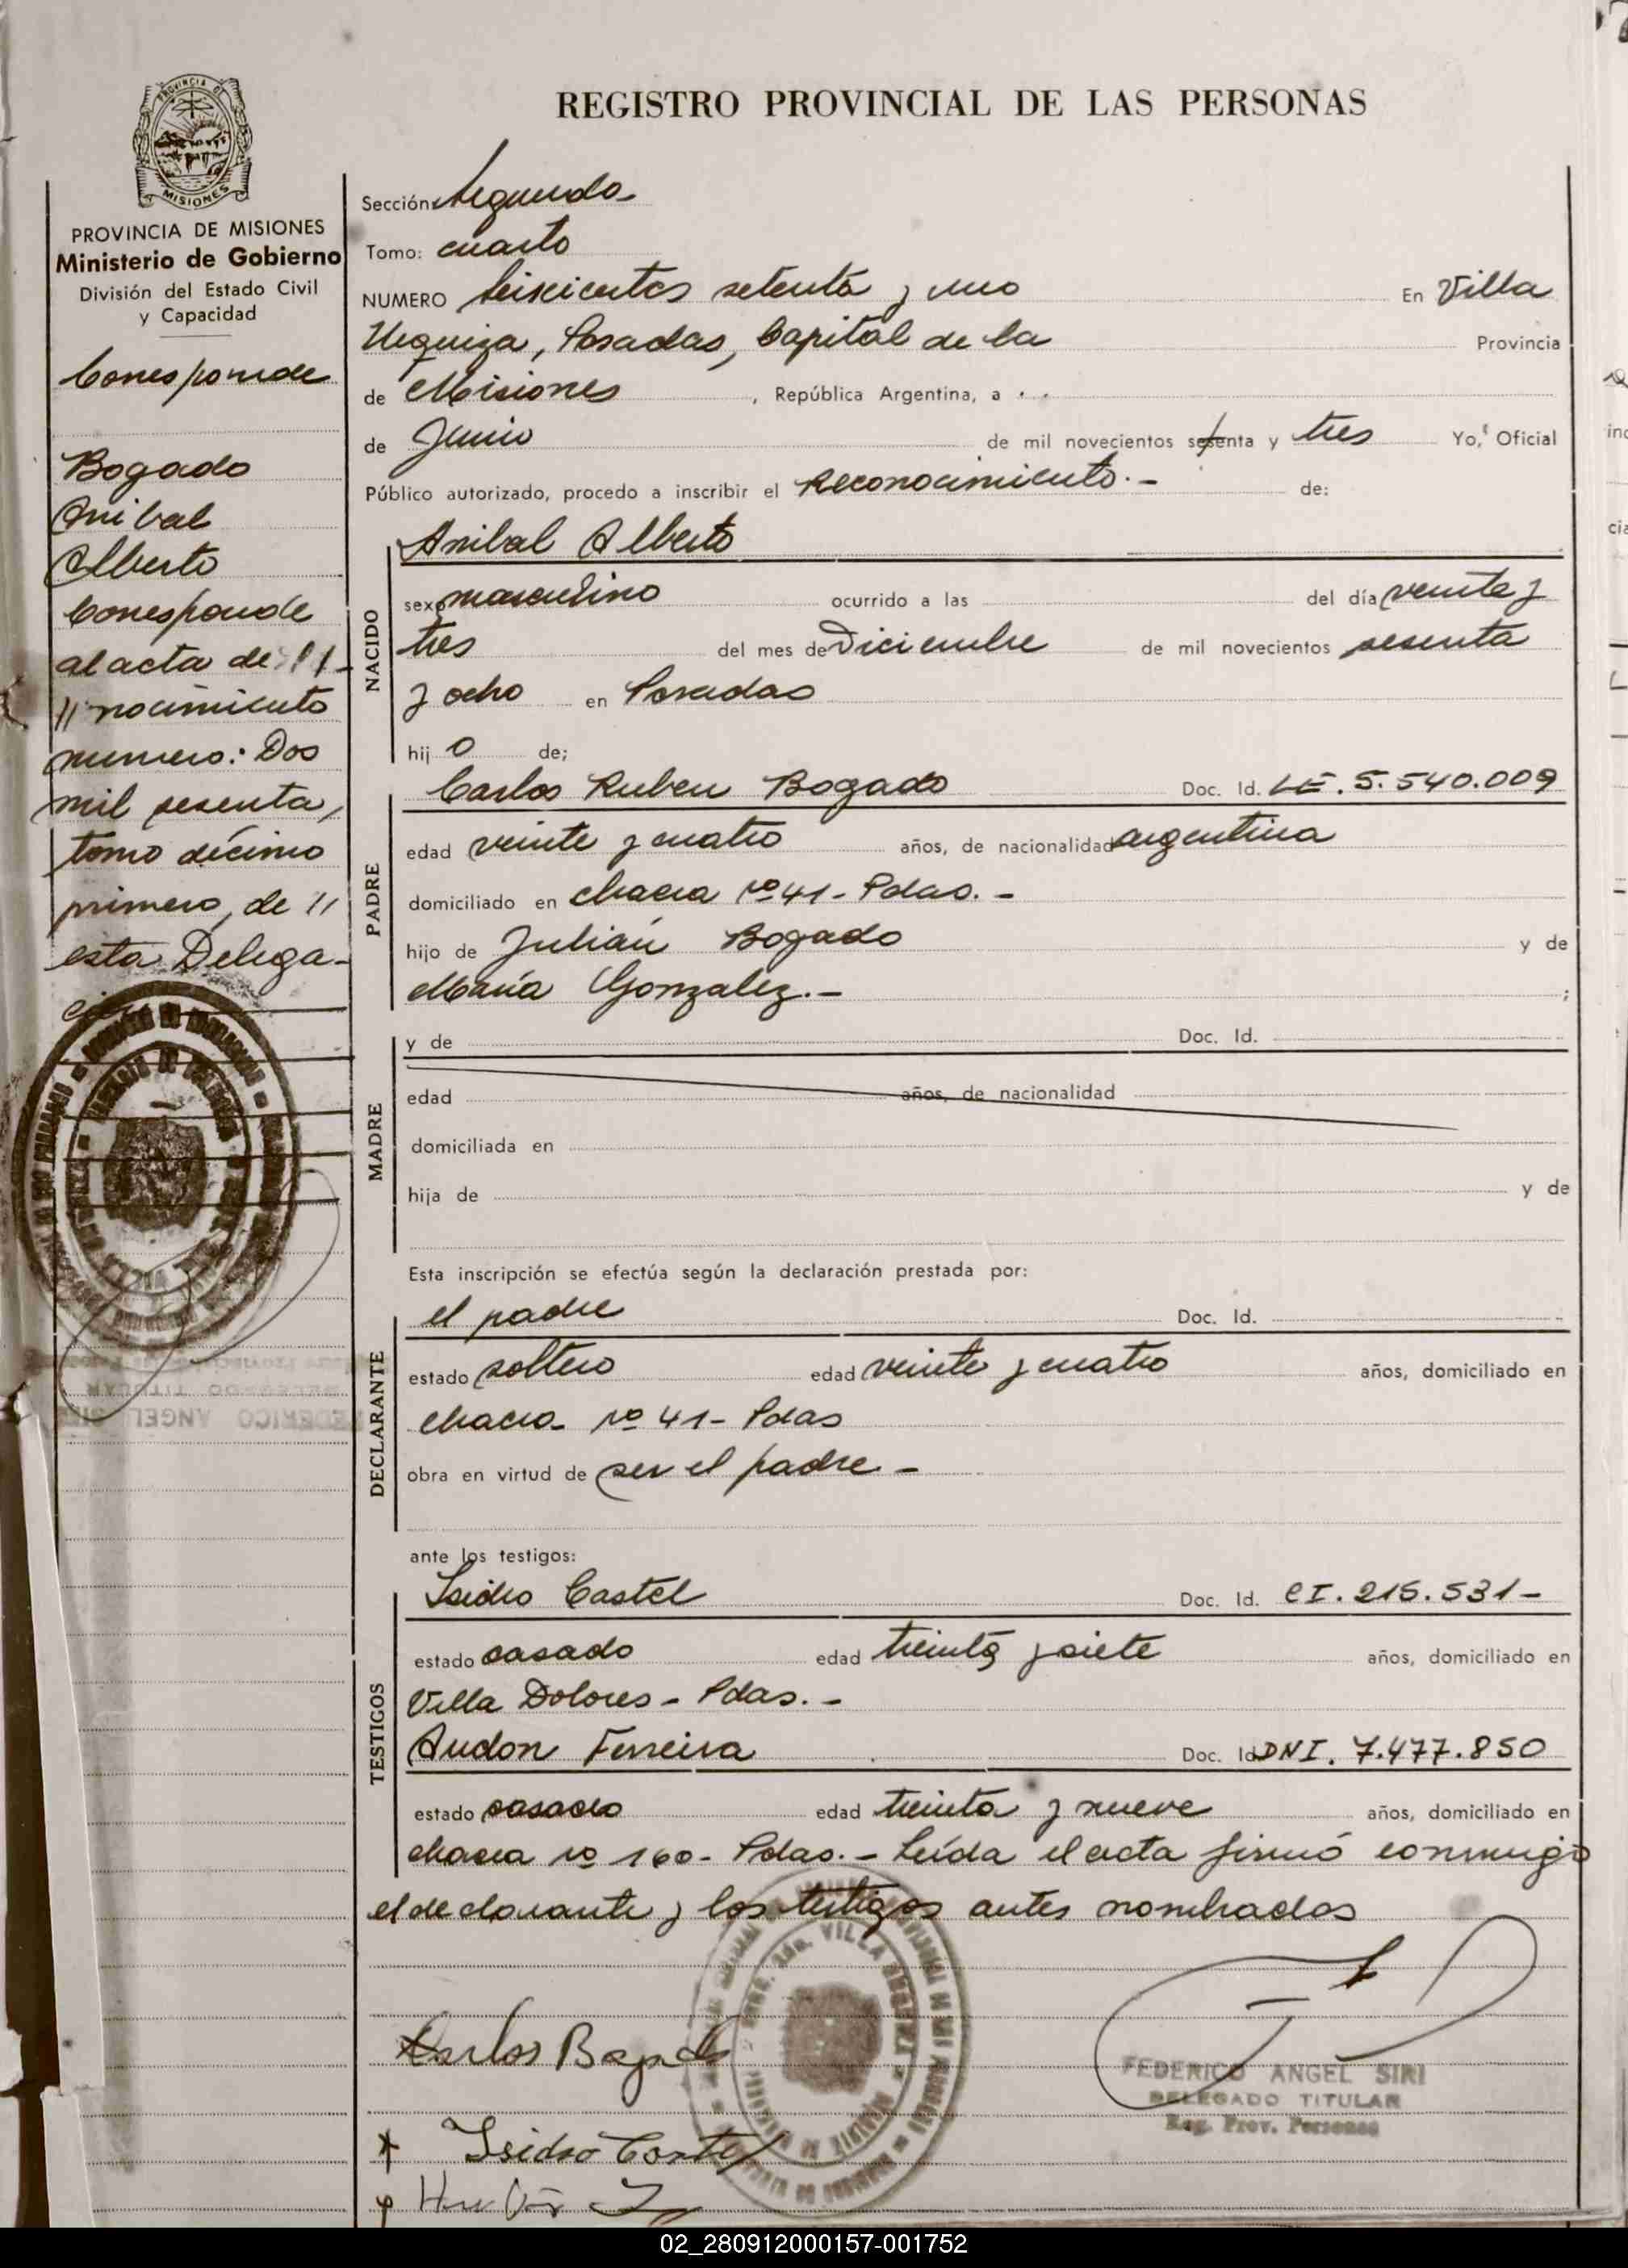 REGISTRO PROVINCIAL DE LAS PERSONAS
PROVINCIA DE
MISIONES
PROVINCIA DE MISIONES
Ministerio de Gobierno
División del Estado Civil
y Capacidad
Corresponde
Bogado
Anibal
Alberto
Corresponde
al acta de //-
// nacimiento
numero: Dos
mil sesenta,
tomo décimo
primero, de //
esta Delega-
ción
Sección: Segunda-
Tomo: cuarto
NUMERO seiscientos setenta y uno En Villa
Urquiza, Posadas, Capital de la Provincia
de Misiones, República Argentina, a
de Junio de mil novecientos sesenta y tres Yo, Oficial
Público autorizado, procedo a inscribir el Reconocimiento.- de:
NACIDO
Anibal Alberto
sexo masculino ocurrido a las del día veinte y
tres del mes de Diciembre de mil novecientos sesenta
y ocho en Posadas
hij o de;
PADRE
Carlos Ruben Bogado Doc. Id. LE. 5.540.009
edad veinte y cuatro años, de nacionalidad argentina
domiciliado en chacra nº 41- Pdas.-
hijo de Julián Bogado y de
María Gonzalez.- ;
MADRE
y de Doc. Id.
edad años, de nacionalidad
domiciliada en
hija de y de
Esta inscripción se efectúa según la declaración prestada por:
DECLARANTE
el padre Doc. Id.
estado soltero edad veinte y cuatro años, domiciliado en
chacra nº 41- Pdas
obra en virtud de ser el padre-
ante los testigos:
TESTIGOS
Isidro Castel Doc. Id. CI. 215.531-
estado casado edad treinta y siete años, domiciliado en
Villa Dolores- Pdas.-
Audon Ferreira Doc. Id DNI. 7.477.850
estado casado edad treinta y nueve años, domiciliado en
chacra nº 160- Pdas.- Leída el acta firmó conmigo
el declarante y los testigos antes nombrados
Carlos Bogado
FEDERICO ANGEL SIRI
DELEGADO TITULAR
Reg. Prov. Personas
Isidro
02_280912000157-001752